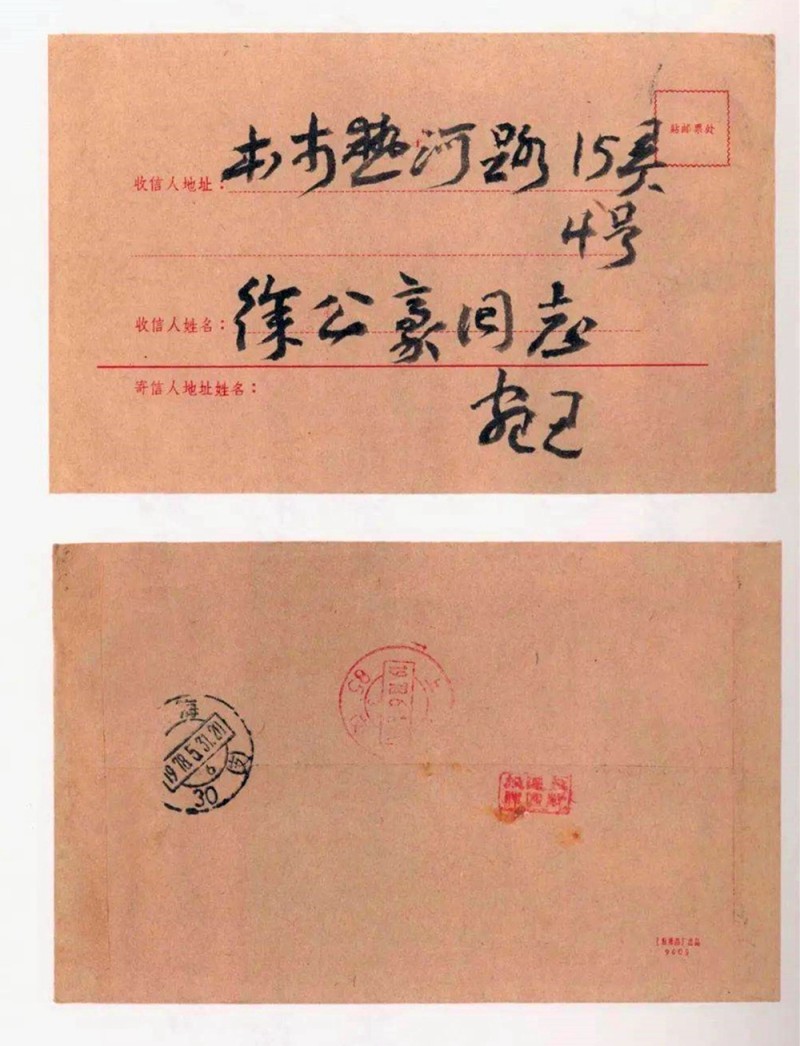 贴邮票处
收信人地址：本市热河路15弄
4号
收信人姓名：徐公豪同志
寄信人地址姓名：
海
1978.5.31.20
6
30